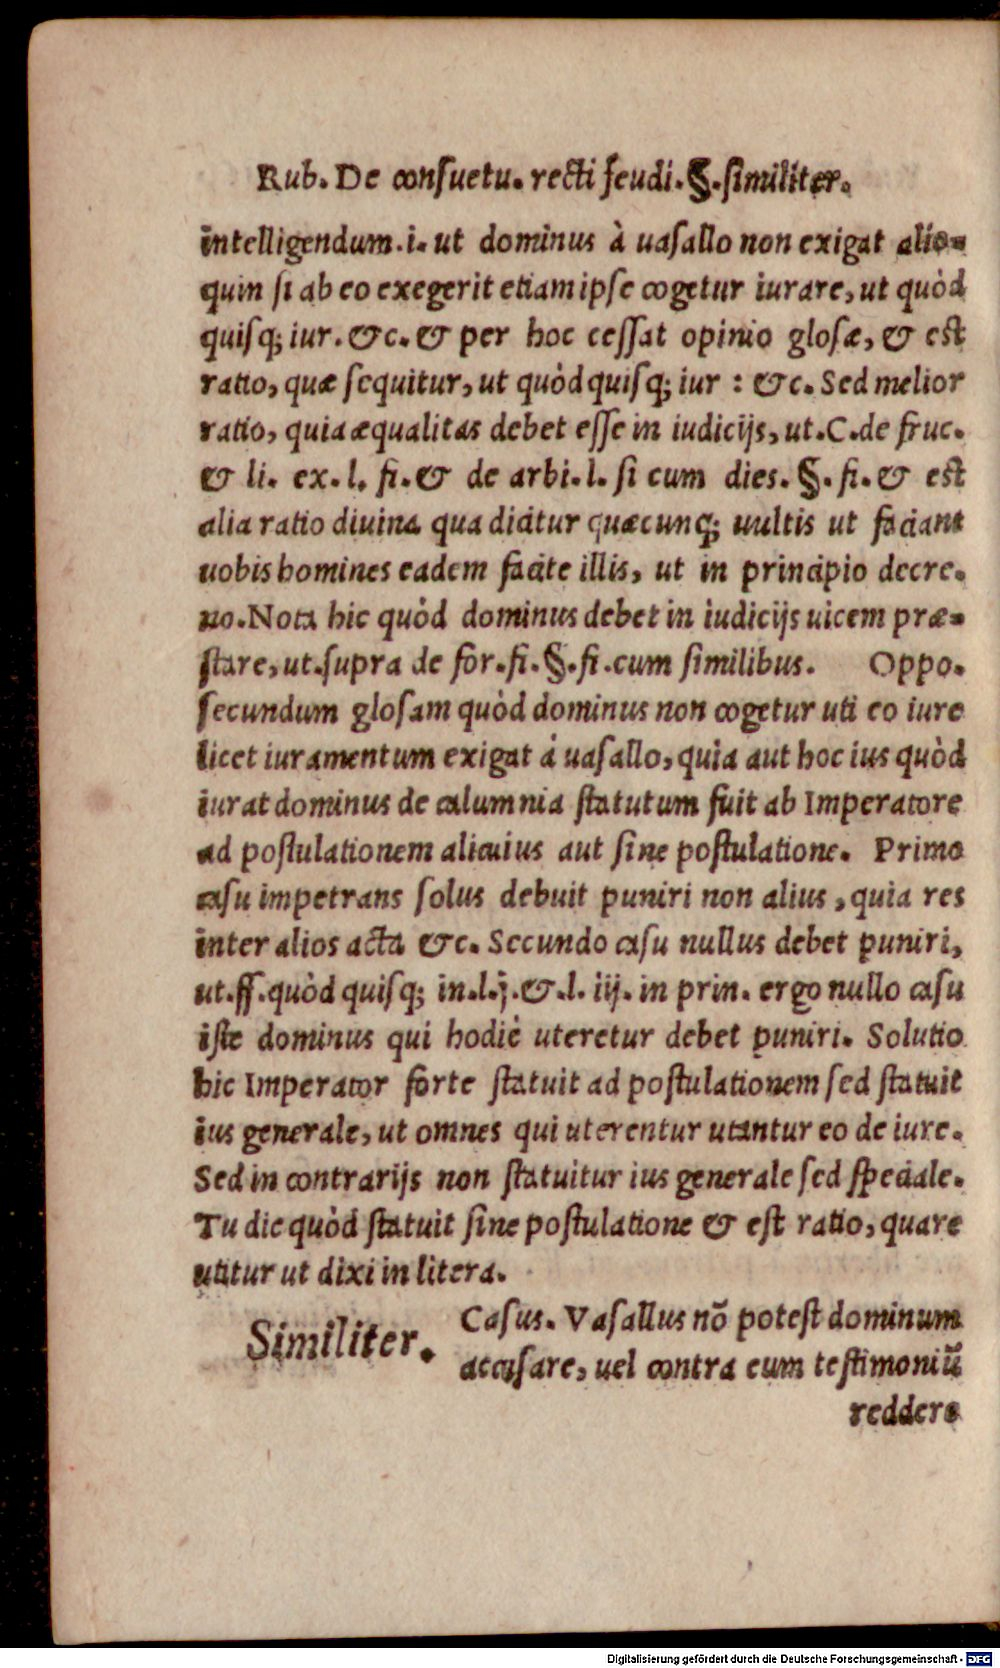 Rub. De consuetu. recti feudi. §. similiter.
intelligendum. i. ut dominus à uasallo non exigat alio-
quin si ab eo exegerit etiam ipse cogetur iurare, ut quòd
quisq; iur. &c. & per hoc cessat opinio glosæ, & est
ratio, quæ sequitur, ut quòd quisq; iur : &c. Sed melior
ratio, quia æqualitas debet esse in iudicijs, ut. C. de fruc.
& li. ex. l. fi. & de arbi. l. si cum dies. §. fi. & est
alia ratio diuina qua dicitur quæcunq; uultis ut faciant
uobis homines eadem facite illis, ut in principio decre.
no. Nota hic quòd dominus debet in iudicijs uicem præ-
stare, ut. supra de for. fi. §. fi. cum similibus. Oppo.
secundum glosam quòd dominus non cogetur uti eo iure
licet iuramentum exigat á uasallo, quia aut hoc ius quòd
iurat dominus de calumnia statutum fuit ab Imperatore
ad postulationem alicuius aut sine postulatione. Primo
casu impetrans solus debuit puniri non alius, quia res
inter alios acta &c. Secundo casu nullus debet puniri,
ut. ff. quòd quisq; in. l. j. &. l. iij. in prin. ergo nullo casu
iste dominus qui hodie uteretur debet puniri. Solutio
hic Imperator forte statuit ad postulationem sed statuit
ius generale, ut omnes qui uterentur utantur eo de iure.
Sed in contrarijs non statuitur ius generale sed speciale.
Tu dic quòd statuit sine postulatione & est ratio, quare
utitur ut dixi in litera.
Similiter. Casus. Vasallus nõ potest dominum
accusare, uel contra eum testimoniũ
reddere
Digitalisierung gefördert durch die Deutsche Forschungsgemeinschaft - DFG